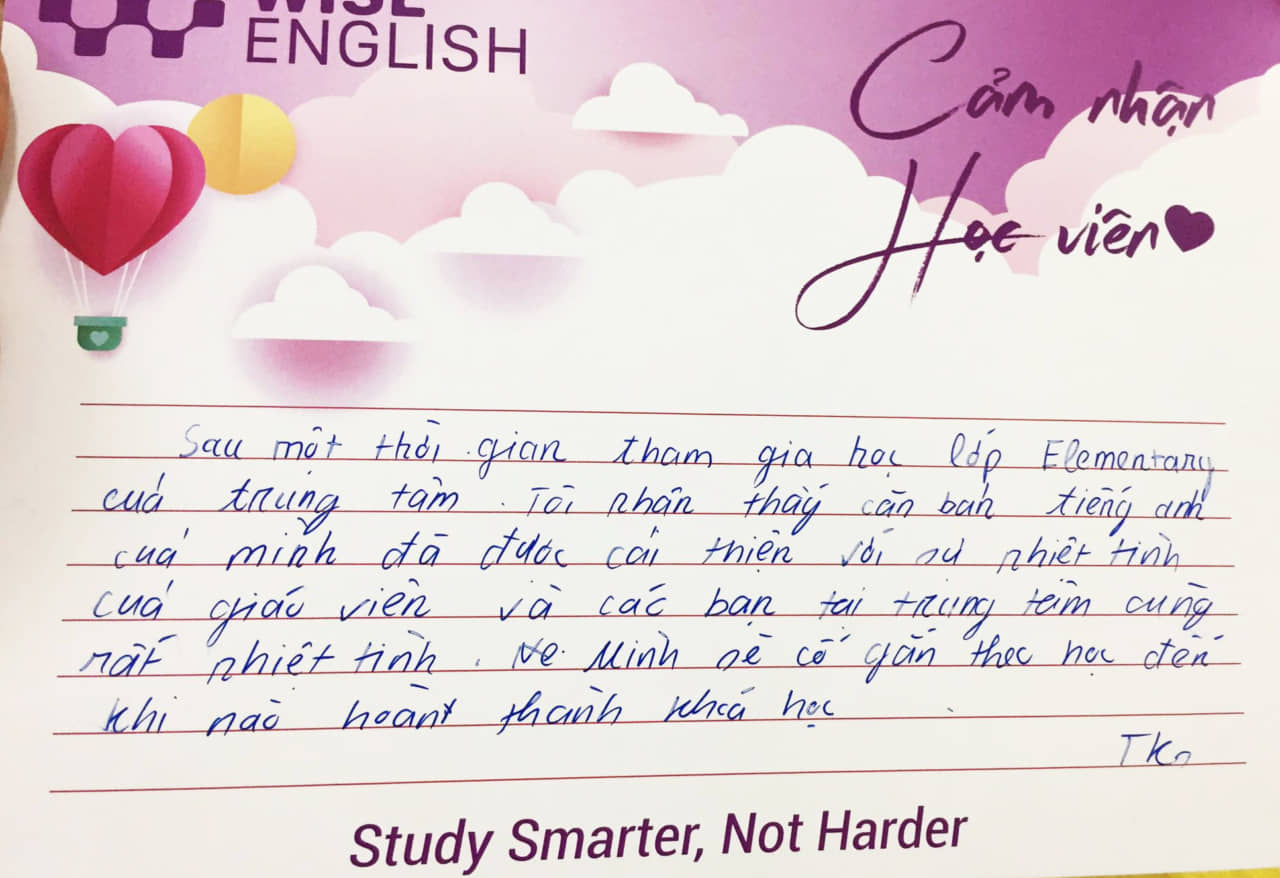 WISE
ENGLISH
Cảm nhận
Học viên
Sau một thời gian tham gia học lớp Elementary
của trung tâm. Tôi nhận thấy căn bản tiếng anh
của mình đã được cải thiện với sự nhiệt tình
của giáo viên và các bạn tại trung tâm cũng
rất nhiệt tình. Mình sẽ cố gắn theo học đến
khi nào hoàn thành khoá học
TKn
Study Smarter, Not Harder